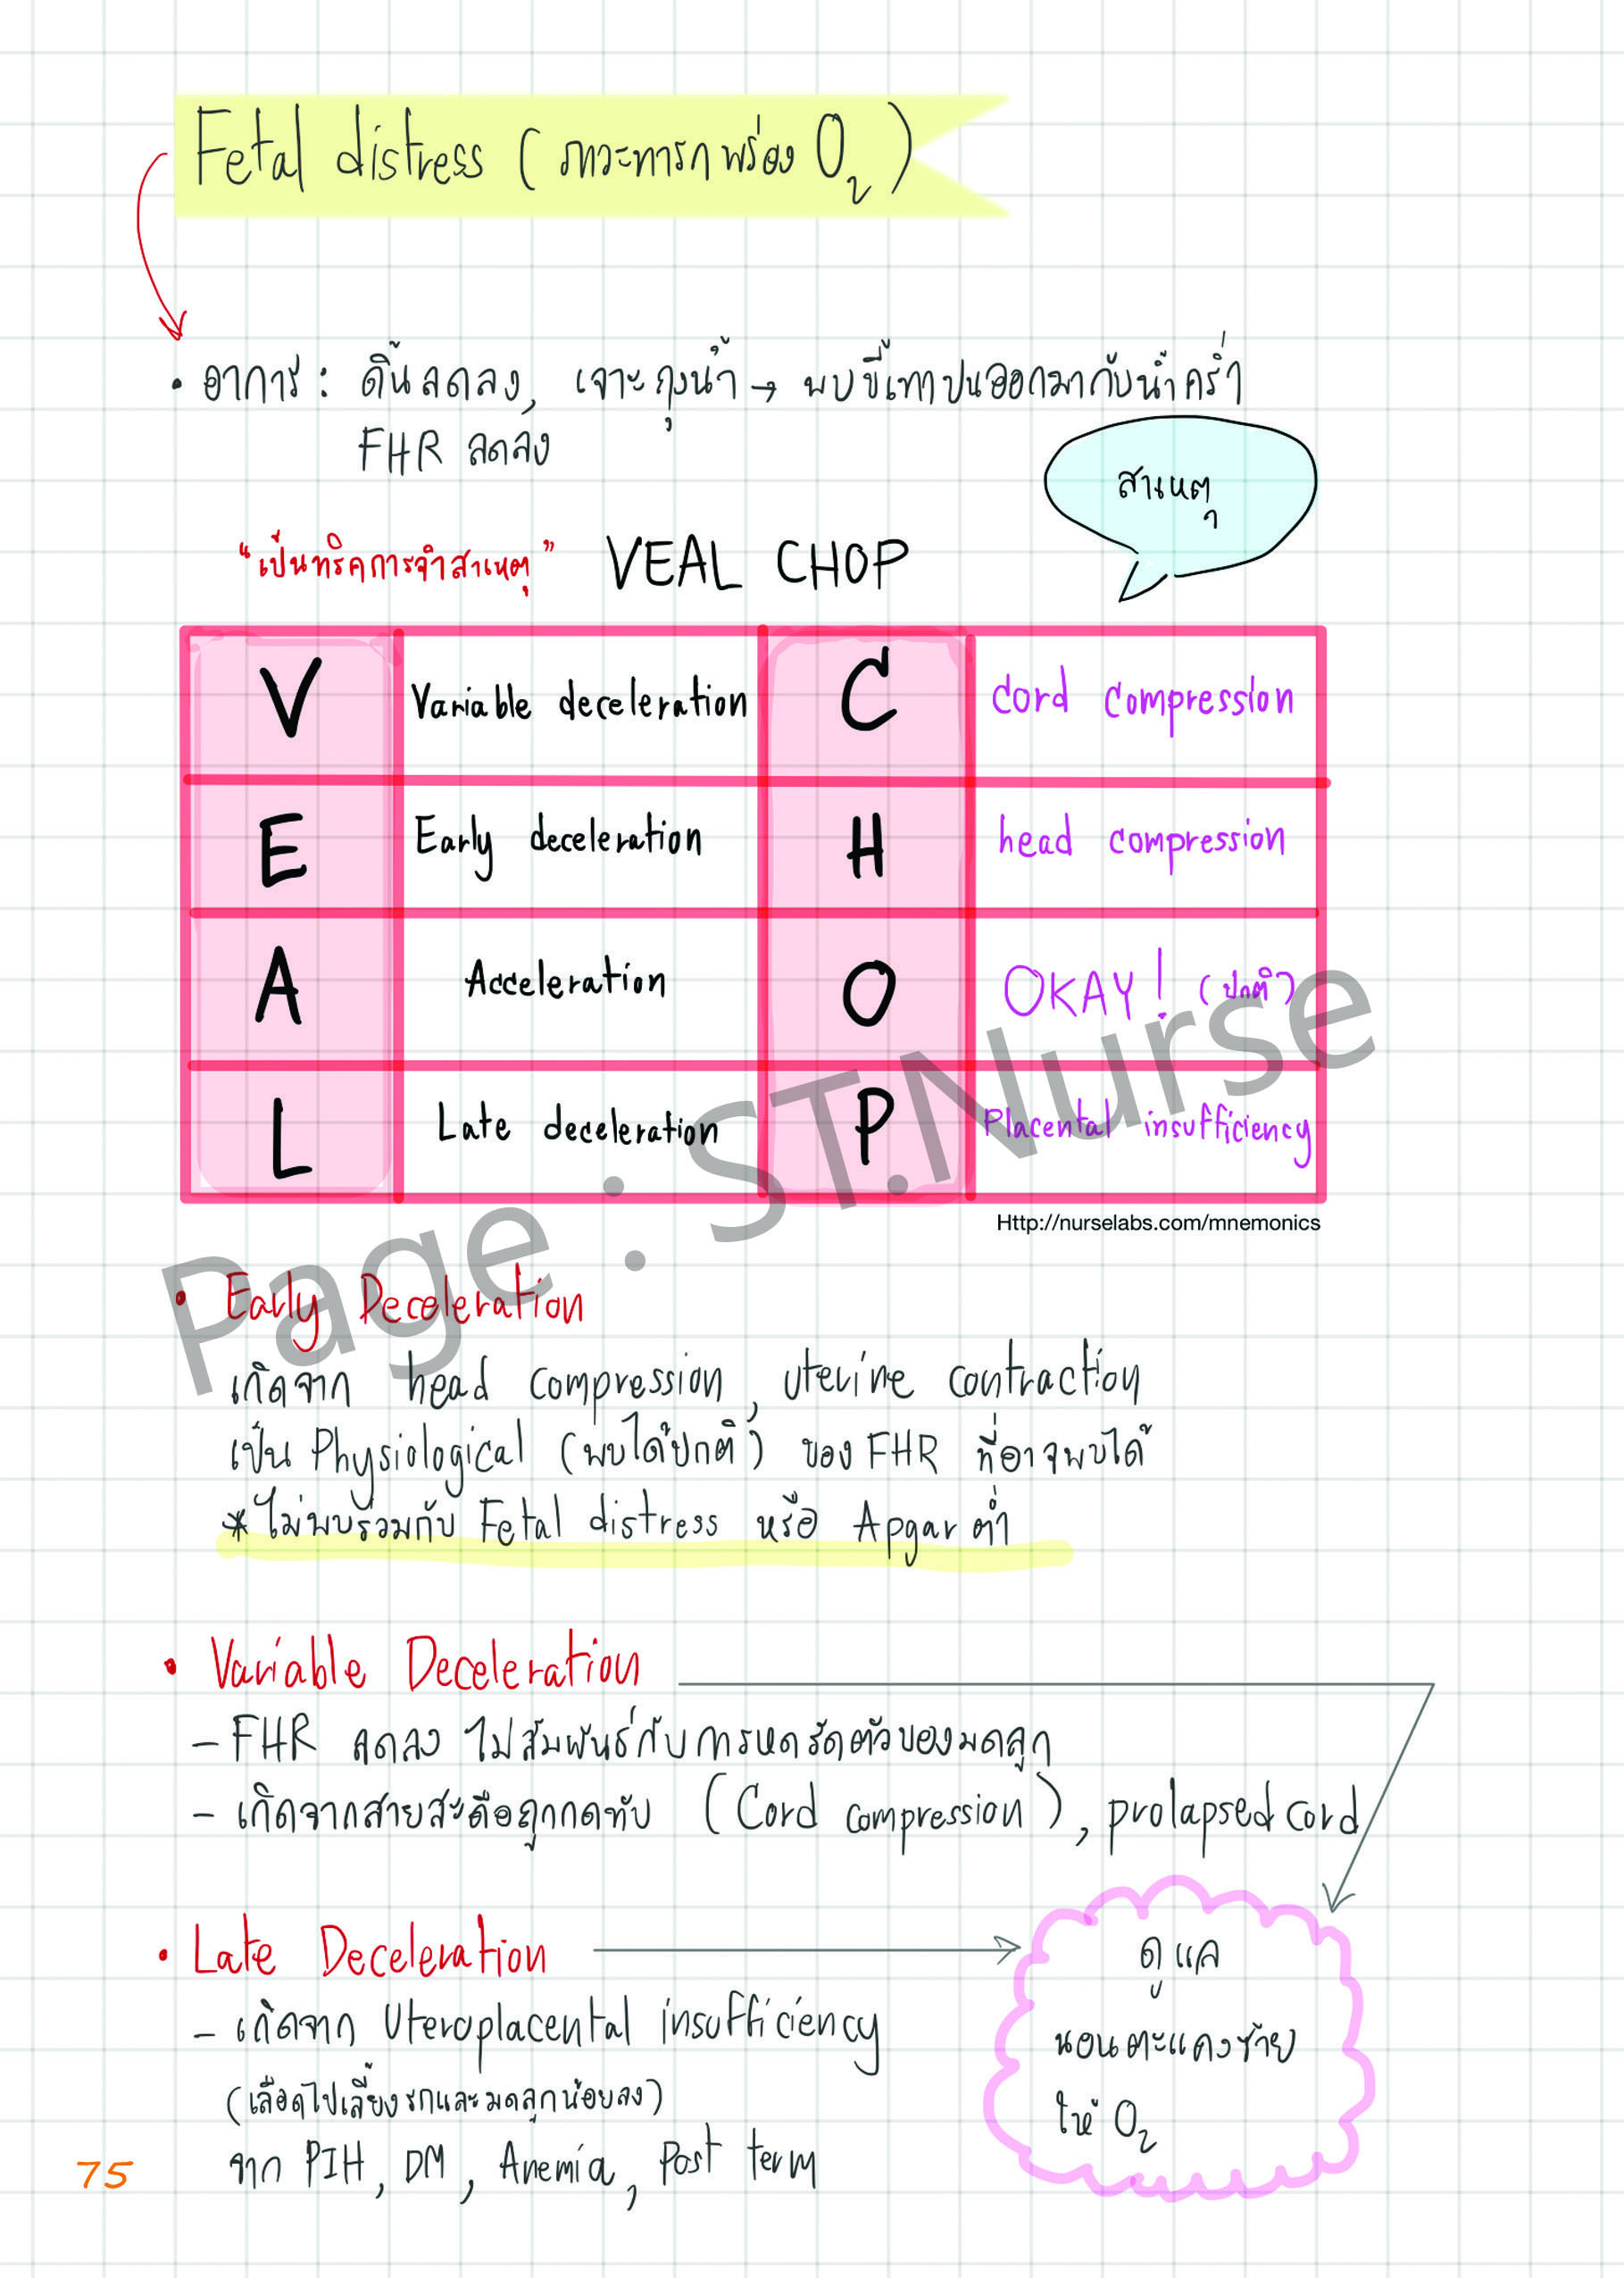 Fetal distress (ภาวะทารกพร่อง O₂)
• อาการ : ดิ้นลดลง, เจาะถุงน้ำ → พบขี้เทาปนออกมากับน้ำคร่ำ
FHR ลดลง
สาเหตุ
"เป็นทริคการจำสาเหตุ" VEAL CHOP
V Variable deceleration C cord compression
E Early deceleration H head compression
A Acceleration O OKAY! (ปกติ)
L Late deceleration P Placental insufficiency
Http://nurselabs.com/mnemonics
Page : ST.Nurse
• Early Deceleration
เกิดจาก head compression, uterine contraction
เป็น Physiological (พบได้ปกติ) ของ FHR ที่อาจพบได้
* ไม่พบร่วมกับ Fetal distress หรือ Apgar ต่ำ
• Variable Deceleration
- FHR ลดลง ไม่สัมพันธ์กับการหดรัดตัวของมดลูก
- เกิดจากสายสะดือถูกกดทับ (Cord compression), prolapsed cord
• Late Deceleration
- เกิดจาก Uteroplacental insufficiency
(เลือดไปเลี้ยงรกและมดลูกน้อยลง)
จาก PIH, DM, Anemia, Post term
ดูแล
นอนตะแคงซ้าย
ให้ O₂
75